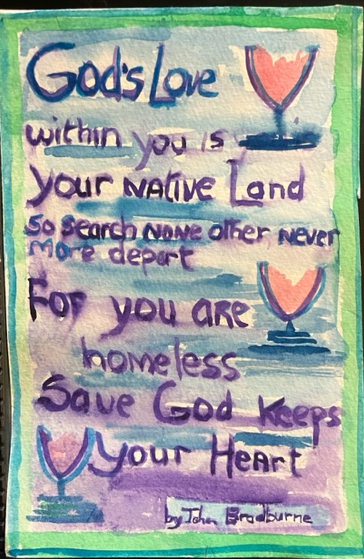 God's Love
within you is
your NATIVE Land
So Search NONE other, never
More depart
For you are
homeless
Save God keeps
your Heart
by John Bradburne